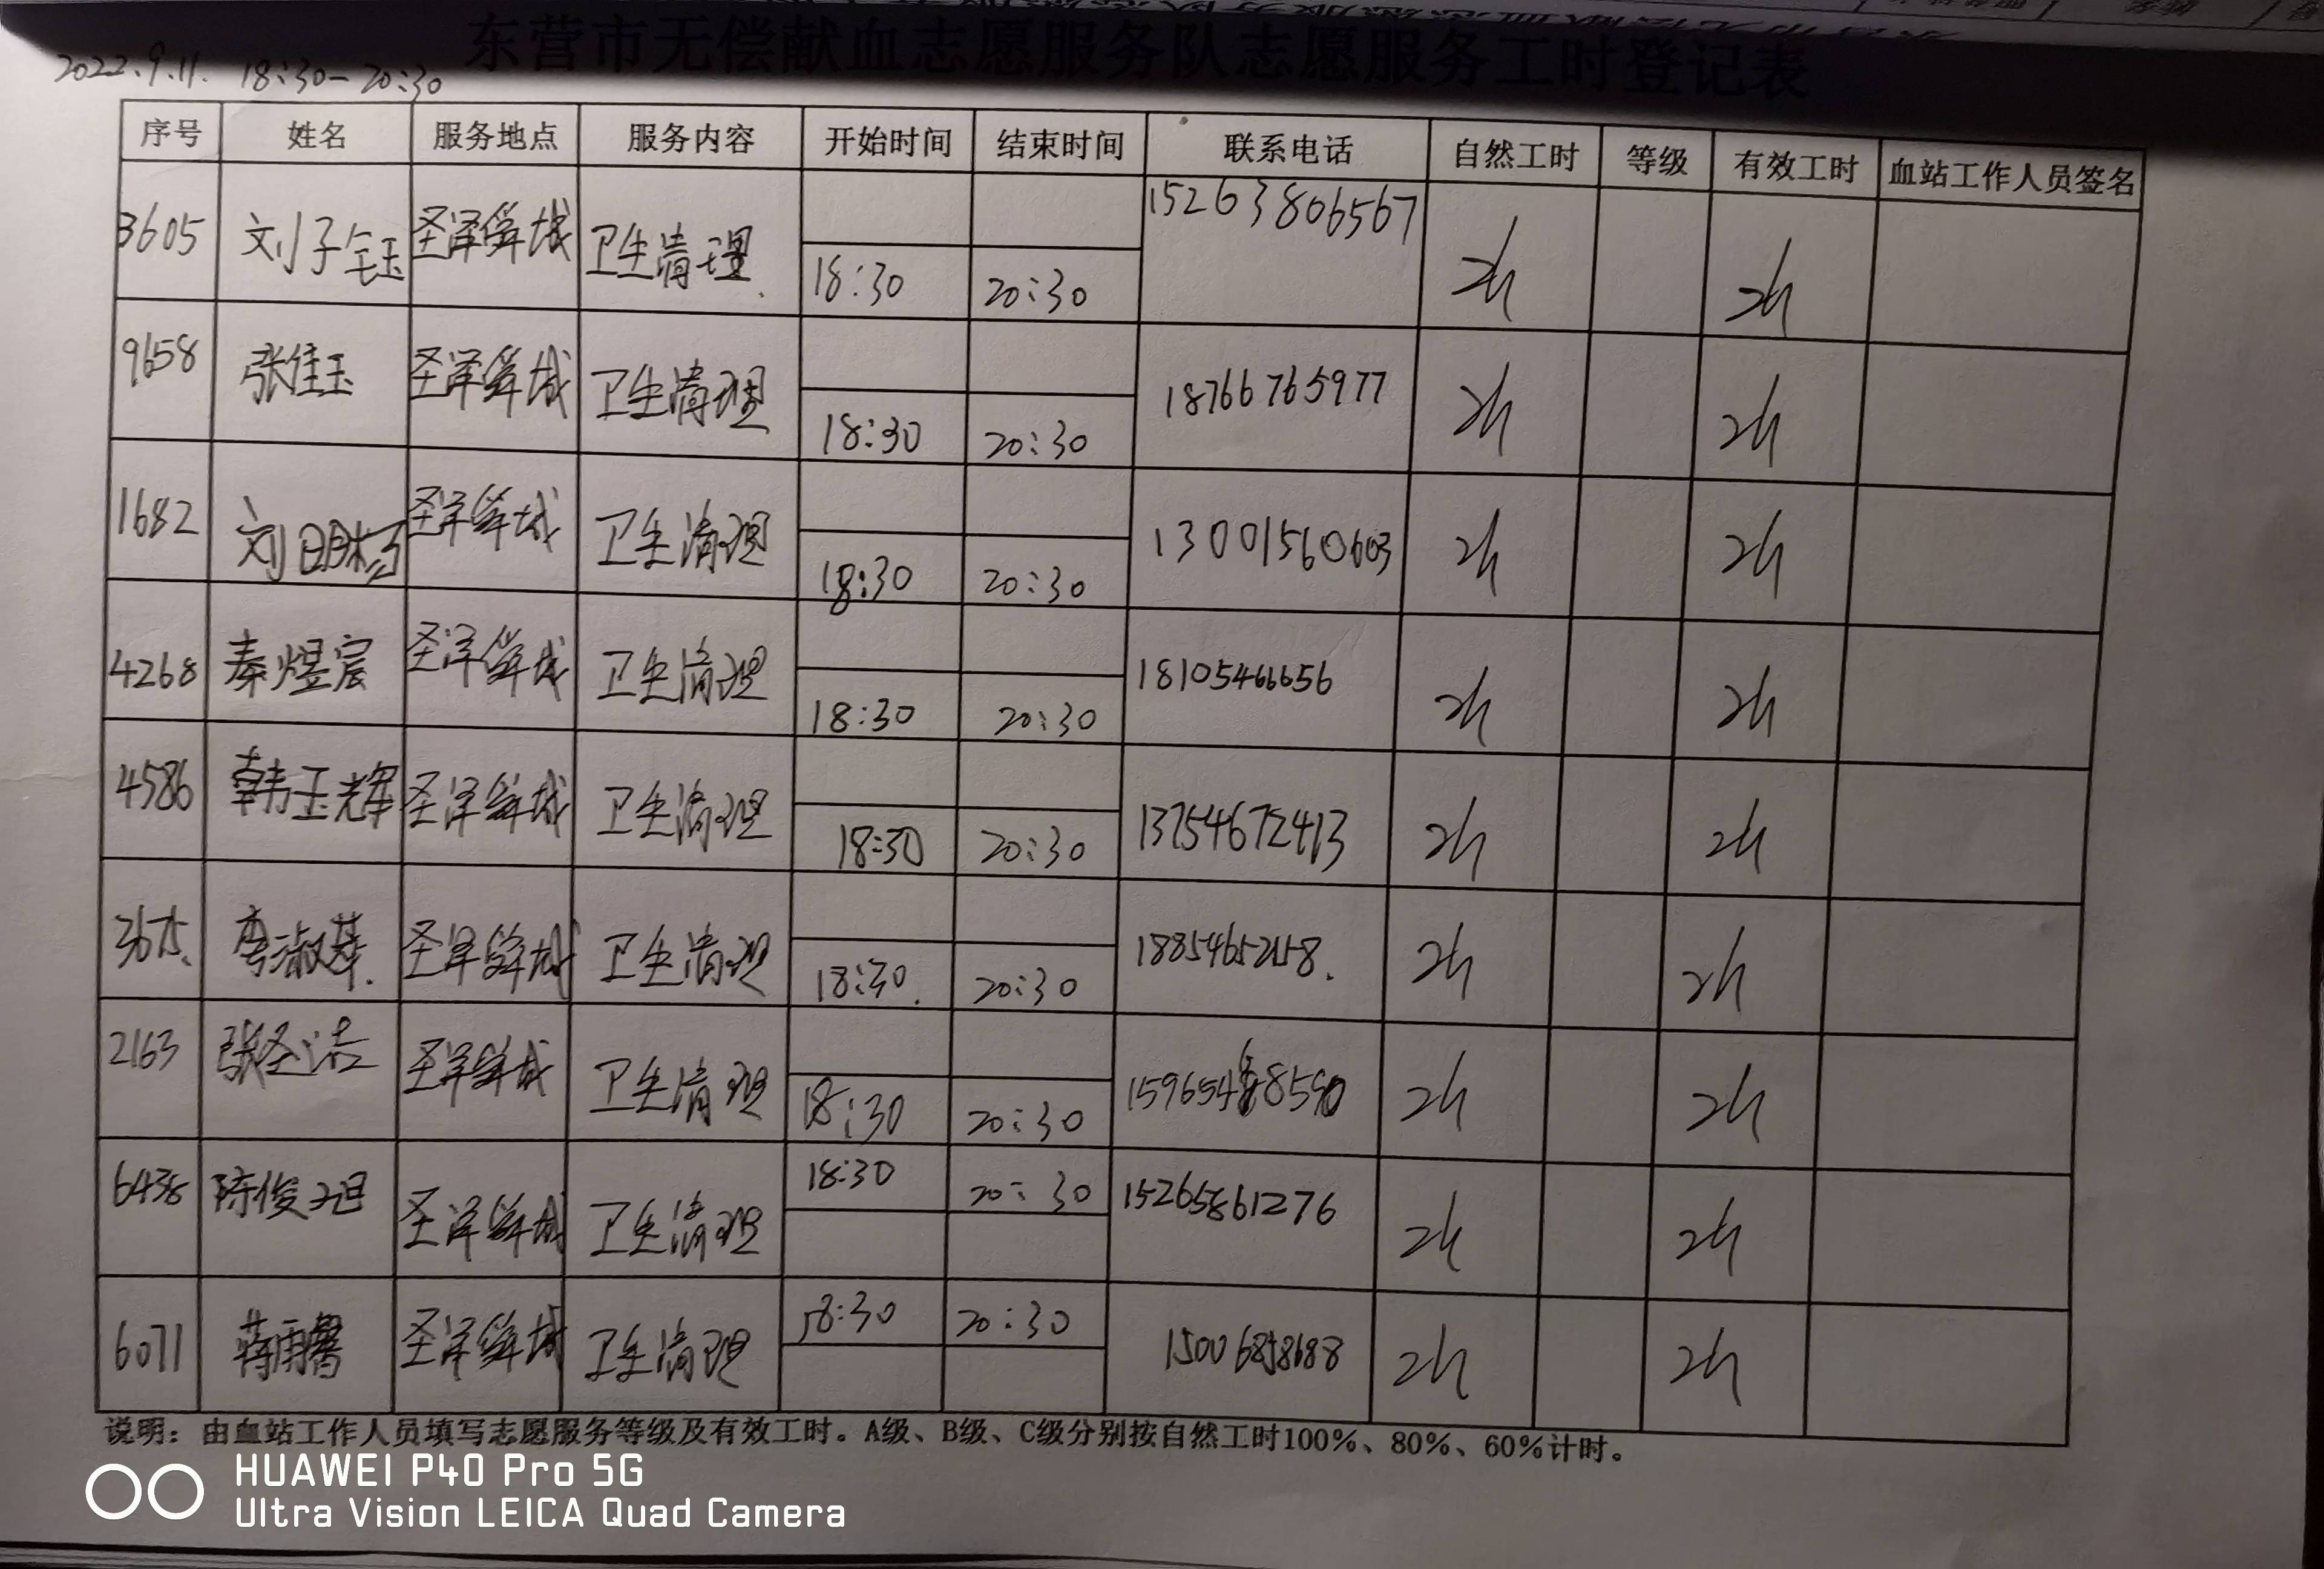 东营市无偿献血志愿服务队志愿服务工时登记表
2022.9.11. 18:30-20:30
序号 姓名 服务地点 服务内容 开始时间 结束时间 联系电话 自然工时 等级 有效工时 血站工作人员签名
3605 刘子钰 圣泽舜城 卫生清理 18:30 20:30 15263806567 2h 2h
9658 张佳玉 圣泽舜城 卫生清理 18:30 20:30 18766765977 2h 2h
1682 刘明杨 圣泽舜城 卫生清理 18:30 20:30 13001560603 2h 2h
4268 秦煜宸 圣泽舜城 卫生清理 18:30 20:30 18105466656 2h 2h
4586 韩玉辉 圣泽舜城 卫生清理 18:30 20:30 13754672413 2h 2h
3675 圣泽舜城 卫生清理 18:30 20:30 2h 2h
2163 张圣洁 圣泽舜城 卫生清理 18:30 20:30 2h 2h
6438 陈俊旭 圣泽舜城 卫生清理 18:30 20:30 15265861276 2h 2h
6071 蒋雨馨 圣泽舜城 卫生清理 18:30 20:30 15006858688 2h 2h
说明：由血站工作人员填写志愿服务等级及有效工时。A级、B级、C级分别按自然工时100%、80%、60%计时。
HUAWEI P40 Pro 5G
Ultra Vision LEICA Quad Camera